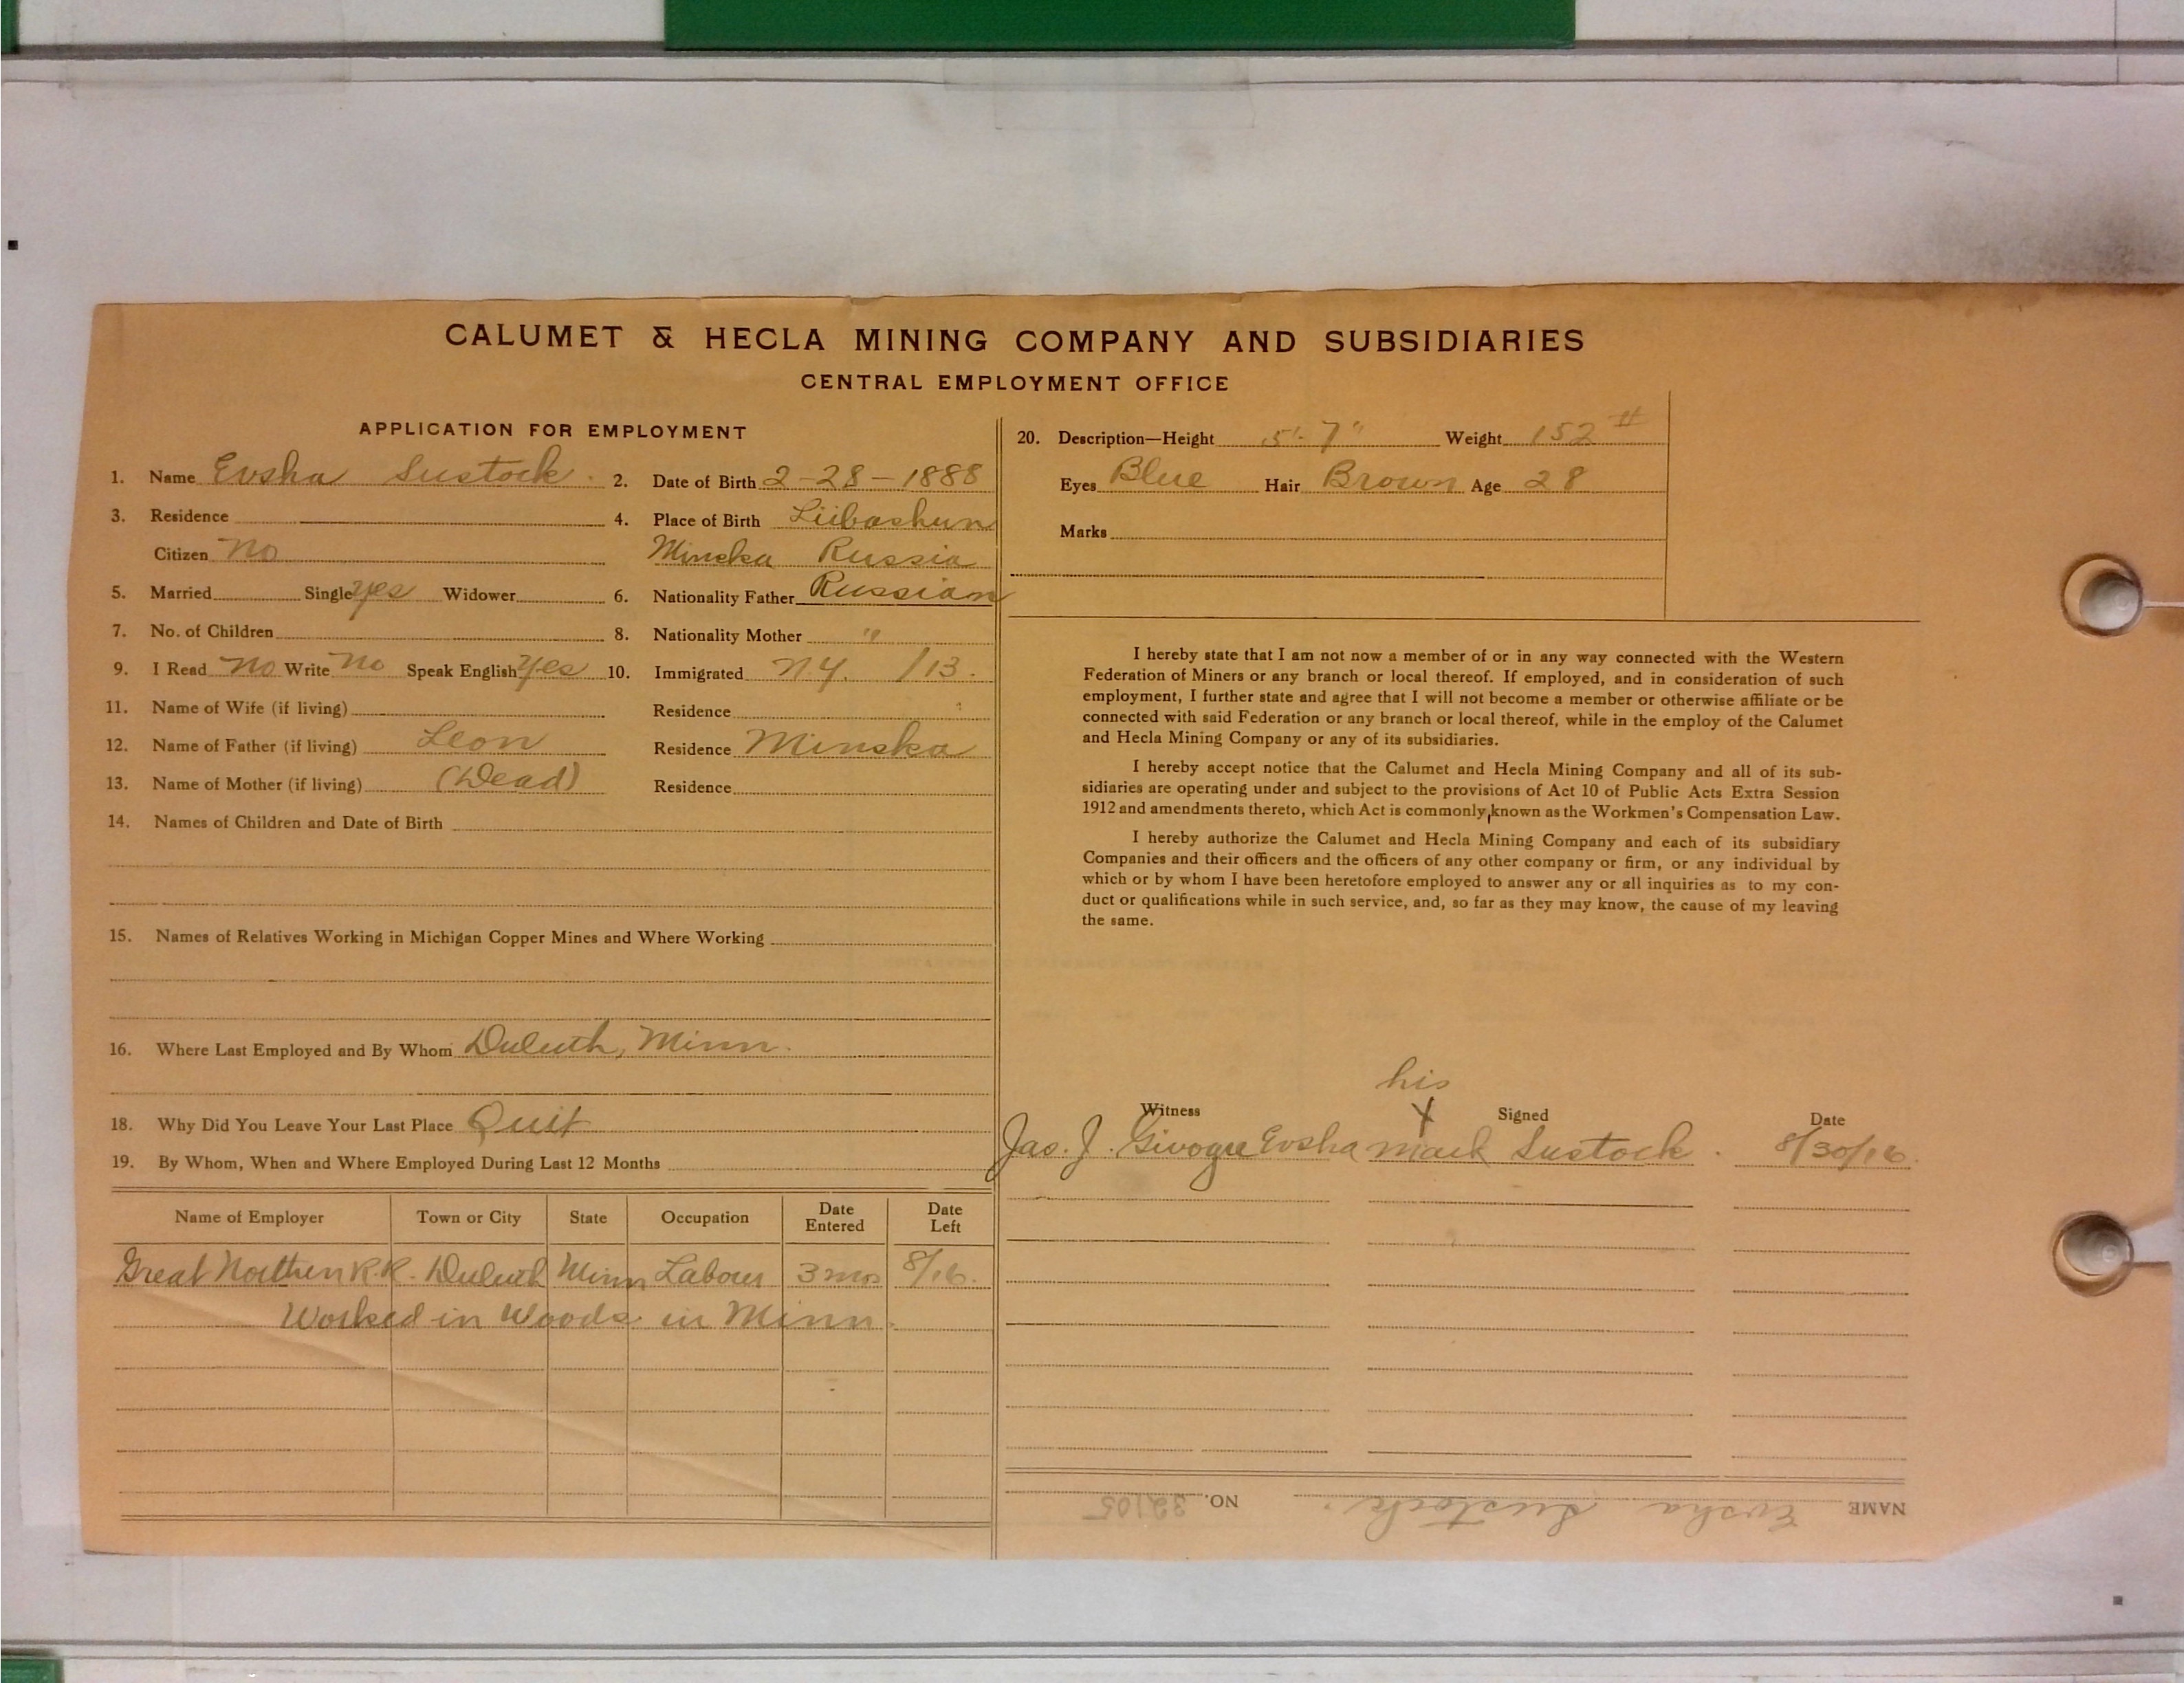 CALUMET & HECLA MINING COMPANY AND SUBSIDIARIES
CENTRAL EMPLOYMENT OFFICE
APPLICATION FOR EMPLOYMENT
1. Name Evsha Sustock. 2. Date of Birth 2-28-1888
3. Residence 4. Place of Birth Liibashun
Citizen No Minska Russia
5. Married Single yes Widower 6. Nationality Father Russian
7. No. of Children 8. Nationality Mother "
9. I Read No Write No Speak English Yes 10. Immigrated N.Y. /13.
11. Name of Wife (if living) Residence
12. Name of Father (if living) Leon Residence Minska
13. Name of Mother (if living) (Dead) Residence
14. Names of Children and Date of Birth
15. Names of Relatives Working in Michigan Copper Mines and Where Working
16. Where Last Employed and By Whom Duluth, Minn.
18. Why Did You Leave Your Last Place Quit
19. By Whom, When and Where Employed During Last 12 Months
Name of Employer Town or City State Occupation Date Entered Date Left
Great Northern R.R. Duluth Minn Labour 3 mos 8/16.
Worked in Woods in Minn.
20. Description—Height 5'-7" Weight 152 #
Eyes Blue Hair Brown Age 28
Marks
I hereby state that I am not now a member of or in any way connected with the Western
Federation of Miners or any branch or local thereof. If employed, and in consideration of such
employment, I further state and agree that I will not become a member or otherwise affiliate or be
connected with said Federation or any branch or local thereof, while in the employ of the Calumet
and Hecla Mining Company or any of its subsidiaries.
I hereby accept notice that the Calumet and Hecla Mining Company and all of its sub-
sidiaries are operating under and subject to the provisions of Act 10 of Public Acts Extra Session
1912 and amendments thereto, which Act is commonly known as the Workmen's Compensation Law.
I hereby authorize the Calumet and Hecla Mining Company and each of its subsidiary
Companies and their officers and the officers of any other company or firm, or any individual by
which or by whom I have been heretofore employed to answer any or all inquiries as to my con-
duct or qualifications while in such service, and, so far as they may know, the cause of my leaving
the same.
his
Witness X Signed Date
Jas. J. Evsha mark Sustock. 8/30/16.
NAME Evsha Sustock. NO. 32105